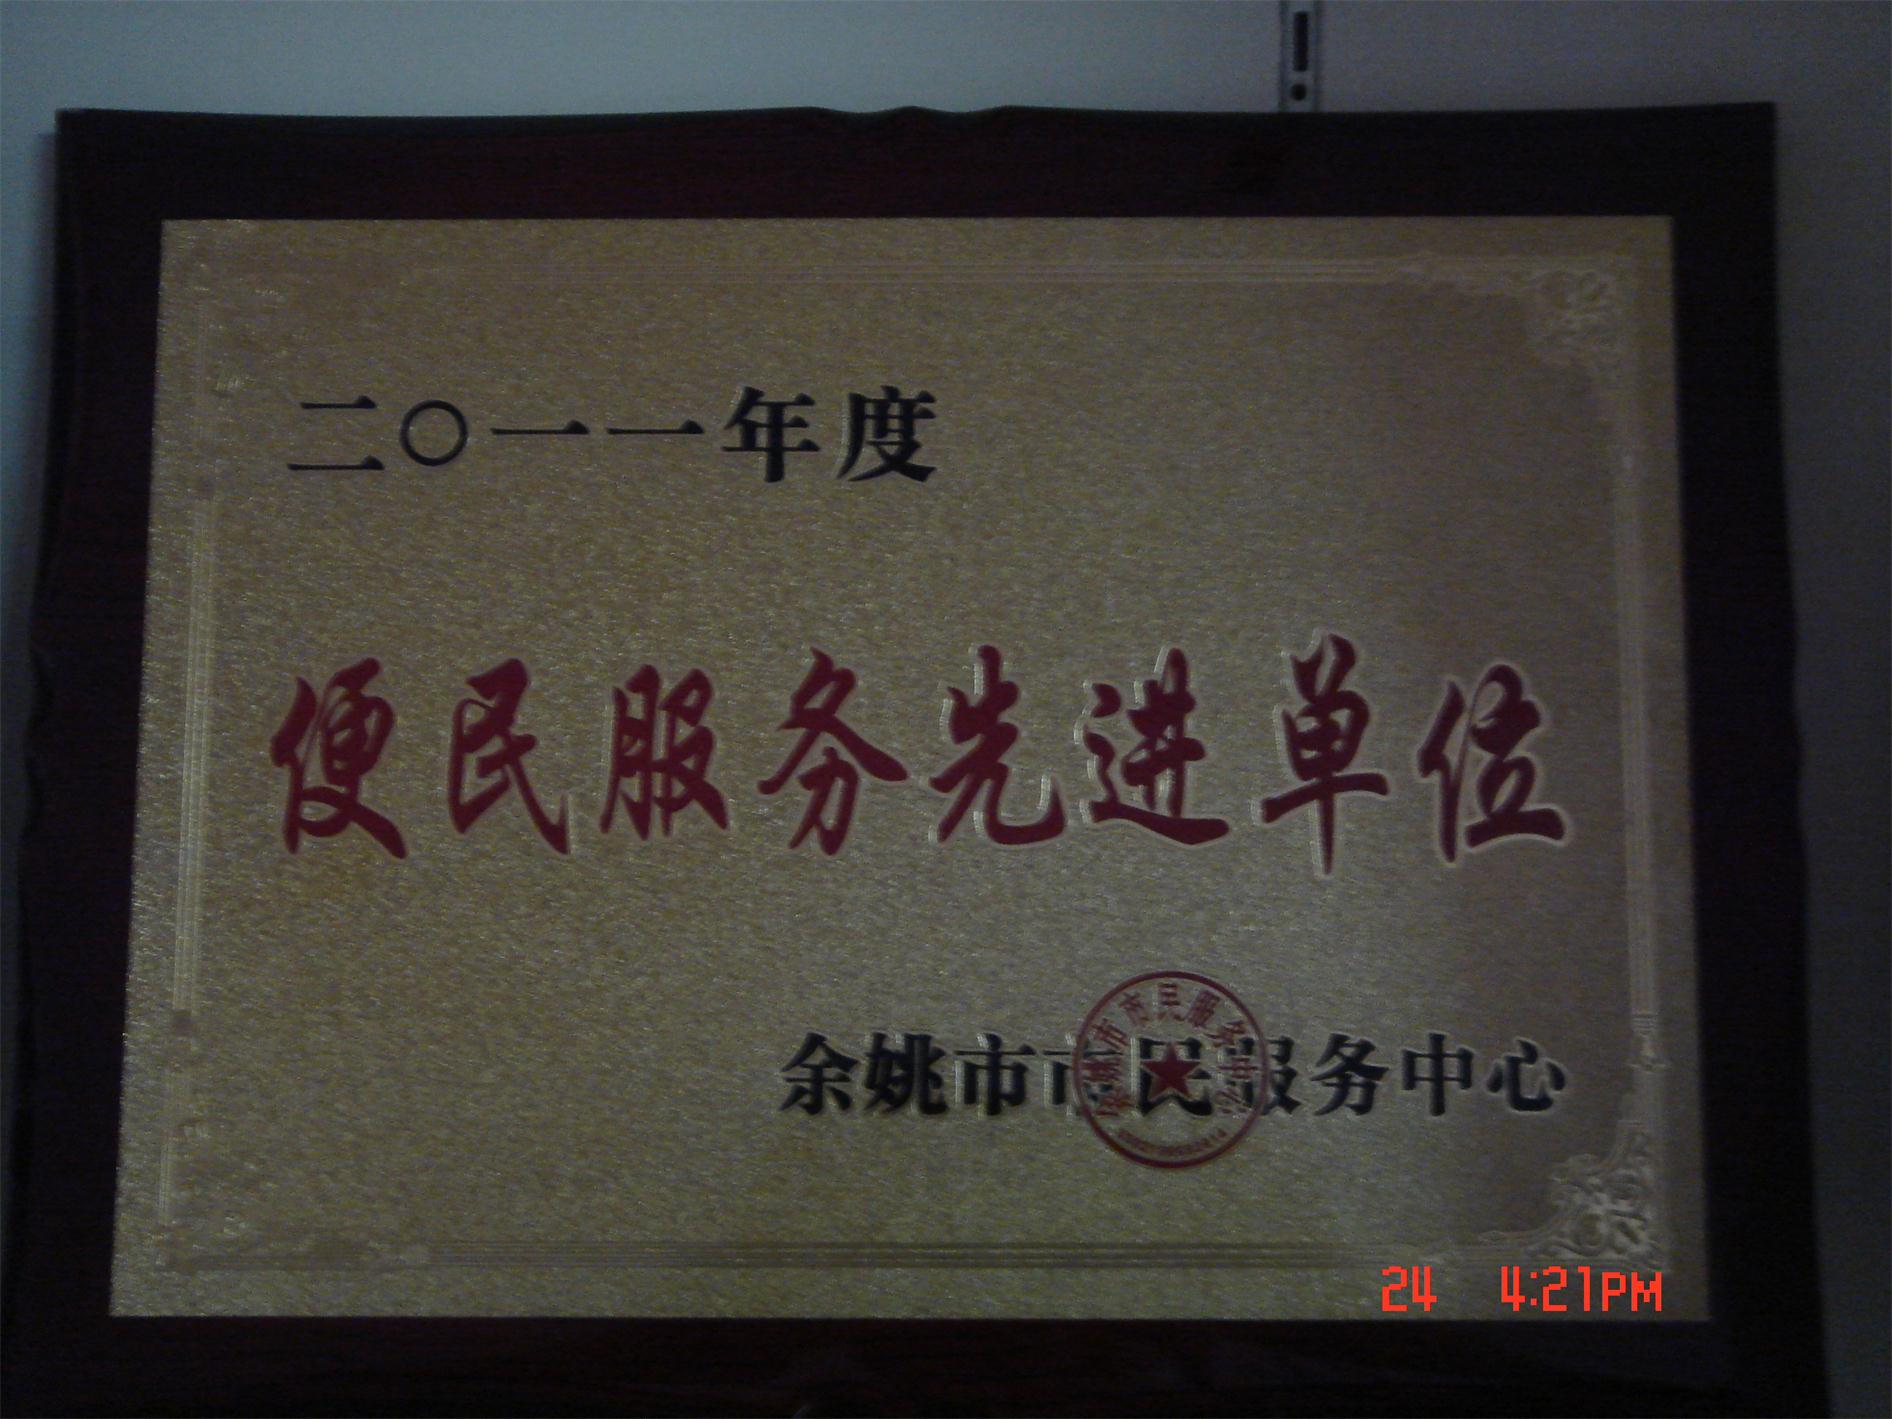 二〇一一年度
便民服务先进单位
余姚市市民服务中心
余姚市市民服务中心
24 4:21PM